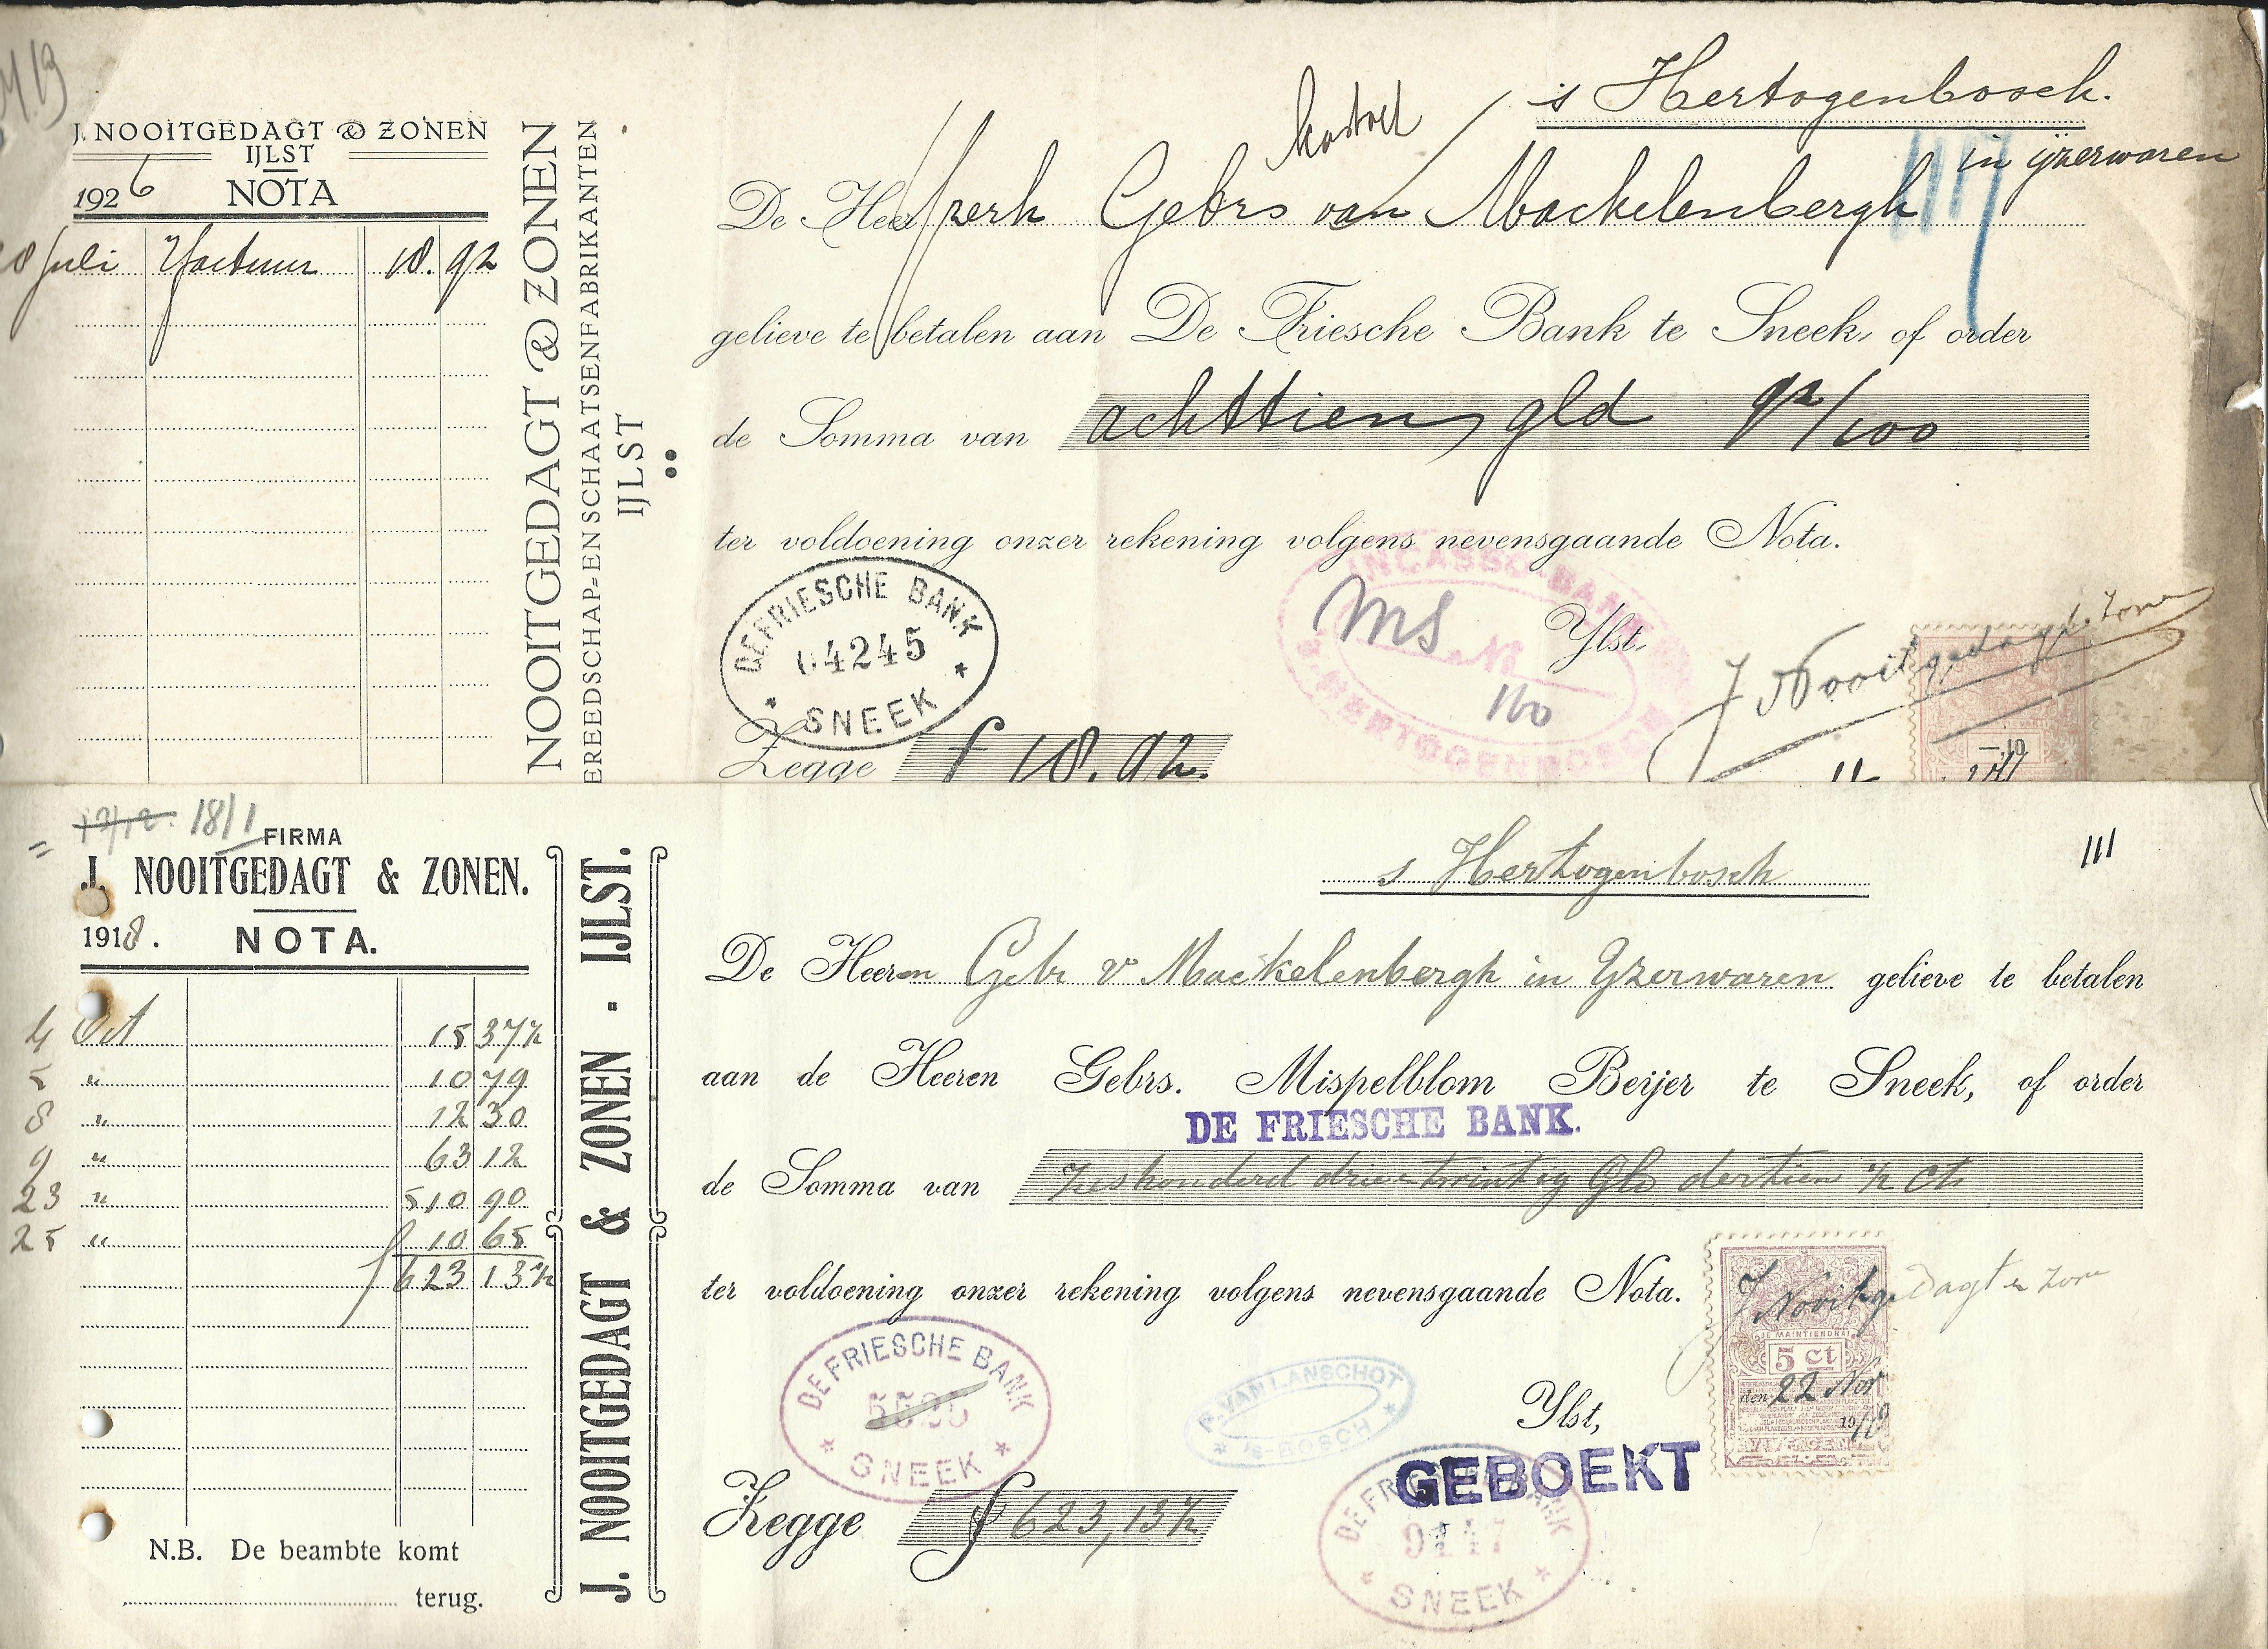 J. NOOITGEDAGT & ZONEN
IJLST
1926 NOTA
Juli 18.92
NOOITGEDAGT & ZONEN
EREEDSCHAP- EN SCHAATSENFABRIKANTEN
IJLST
's Hertogenbosch.
in ijzerwaren
De Heer Gebrs van Mackelenbergh
117
gelieve te betalen aan De Friesche Bank te Sneek, of order
de Somma van achttien gld 92/100
ter voldoening onzer rekening volgens nevensgaande Nota.
DE FRIESCHE BANK
04245
SNEEK
INCASSO-BANK
No
's HERTOGENBOSCH
MS
160
Ylst,
J Nooitgedagt & Zonen
Zegge f 18.92.
18/1
FIRMA
J. NOOITGEDAGT & ZONEN.
1918. NOTA.
4 Oct 15 37½
5 " 10 79
8 " 12 30
9 " 63 12
23 " 510 90
25 " 10 65
f 623 13½
N.B. De beambte komt
terug.
J. NOOITGEDAGT & ZONEN - IJLST.
's Hertogenbosch
111
De Heeren Gebr v Mackelenbergh in Yzerwaren gelieve te betalen
aan de Heeren Gebrs. Mispelblom Beijer te Sneek, of order
DE FRIESCHE BANK.
de Somma van Zeshonderd drie twintig Gld dertien ½ cts
ter voldoening onzer rekening volgens nevensgaande Nota.
J Nooitgedagt en Zonen
JE MAINTIENDRAI
5 ct
den 22 Nov
1918
DE FRIESCHE BANK
5525
SNEEK
F. VAN LANSCHOT
's-BOSCH
Ylst,
GEBOEKT
DE FRIESCHE BANK
9147
SNEEK
Zegge f 623,13½